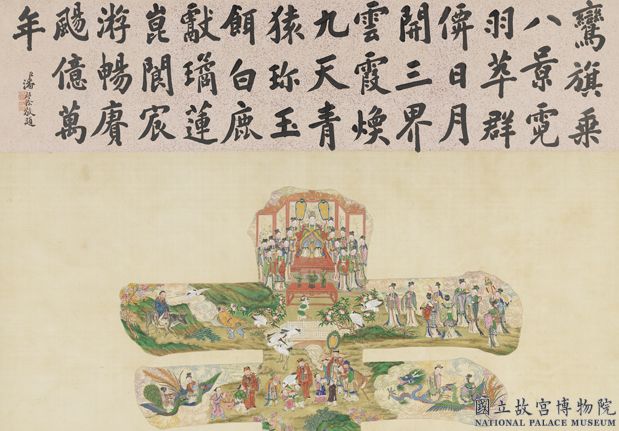 鸞旗乘
八景霓
羽萃群
僊日月
開三界
雲霞煥
九天青
猿珎玉
餌白鹿
獻璚蓮
崑閬宸
游暢賡
颺億萬
年
臣潘敬題
國立故宮博物院
NATIONAL PALACE MUSEUM